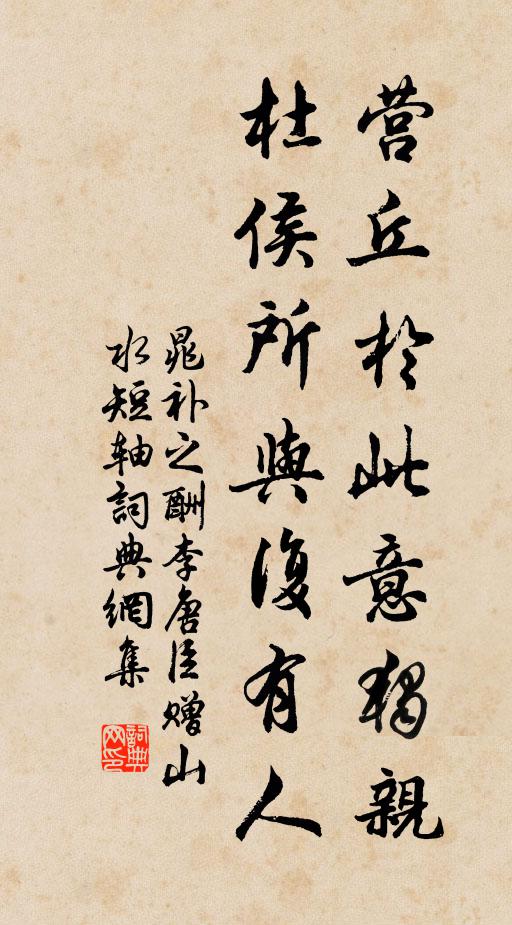 营丘於此意獨親
杜侯所與復有人
晁补之酬李唐臣赠山
水短轴詞典網集
詞典网印